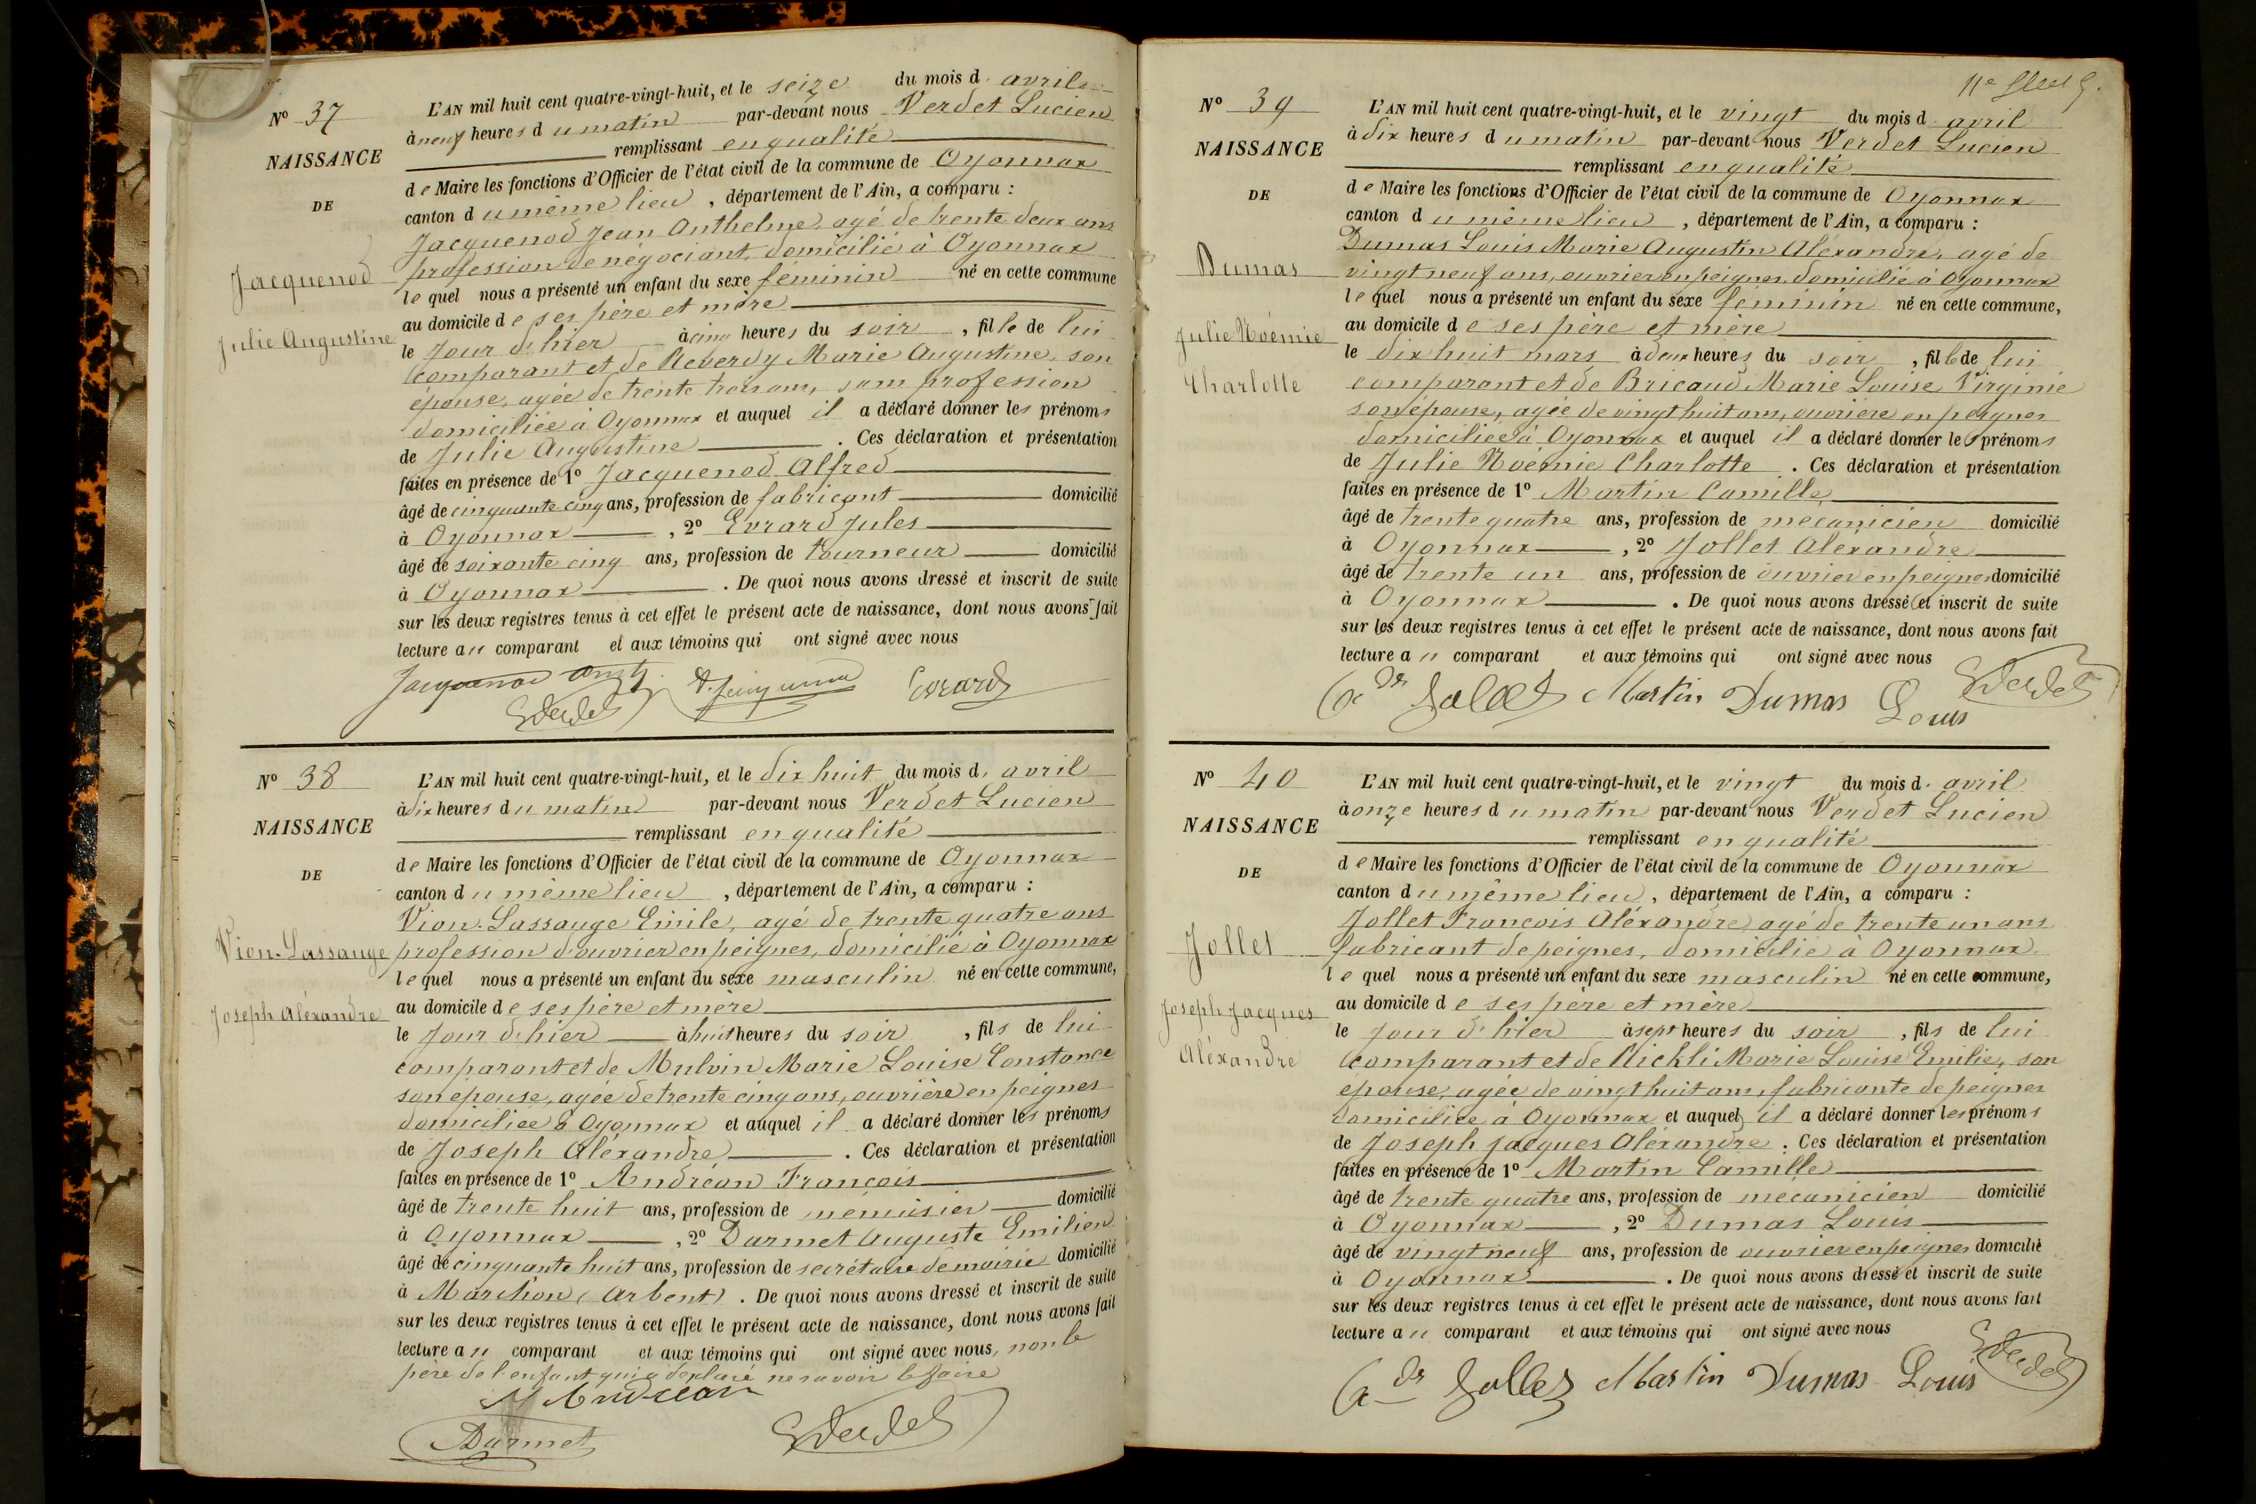 Nº 37
NAISSANCE
DE
Jacquenod
Julie Augustine
L'AN mil huit cent quatre-vingt-huit, et le seize du mois d' avril
à neuf heures du matin par-devant nous Verdet Lucien
remplissant en qualité
de Maire les fonctions d'Officier de l'état civil de la commune de Oyonnax
canton du même lieu, département de l'Ain, a comparu :
Jacquenod Jean Anthelme, agé de trente deux ans
profession de négociant, domicilié à Oyonnax
lequel nous a présenté un enfant du sexe féminin né en cette commune
au domicile de ses père et mère
le jour d'hier à cinq heures du soir, fille de lui
comparant et de Reverdy Marie Augustine, son
épouse, agée de trente trois ans, sans profession
domiciliée à Oyonnax et auquel il a déclaré donner les prénoms
de Julie Augustine. Ces déclaration et présentation
faites en présence de 1º Jacquenod Alfred
âgé de cinquante cinq ans, profession de fabricant domicilié
à Oyonnax, 2º Evrard Jules
âgé de soixante cinq ans, profession de tourneur domicilié
à Oyonnax. De quoi nous avons dressé et inscrit de suite
sur les deux registres tenus à cet effet le présent acte de naissance, dont nous avons fait
lecture au comparant et aux témoins qui ont signé avec nous
Evrard
Verdet
Nº 38
NAISSANCE
DE
Vion-Lassauge
Joseph Aléxandre
L'AN mil huit cent quatre-vingt-huit, et le dix huit du mois d' avril
à dix heures du matin par-devant nous Verdet Lucien
remplissant en qualité
de Maire les fonctions d'Officier de l'état civil de la commune de Oyonnax
canton du même lieu, département de l'Ain, a comparu :
Vion-Lassauge Emile, agé de trente quatre ans
profession d'ouvrier en peignes, domicilié à Oyonnax
lequel nous a présenté un enfant du sexe masculin né en cette commune,
au domicile de ses père et mère
le jour d'hier à huit heures du soir, fils de lui
comparant et de Mulvin Marie Louise Constance
son épouse, agée de trente cinq ans, ouvrière en peignes
domiciliée à Oyonnax et auquel il a déclaré donner les prénoms
de Joseph Aléxandre. Ces déclaration et présentation
faites en présence de 1º Andréan François
âgé de trente huit ans, profession de menuisier domicilié
à Oyonnax, 2º Darmet Auguste Emilien
âgé de cinquante huit ans, profession de secrétaire de mairie domicilié
à Marchon (Arbent). De quoi nous avons dressé et inscrit de suite
sur les deux registres tenus à cet effet le présent acte de naissance, dont nous avons fait
lecture au comparant et aux témoins qui ont signé avec nous, non le
père de l'enfant qui a déclaré ne savoir le faire
Andréan
Darmet Verdet
Nº 39
NAISSANCE
DE
Dumas
Julie Noémie
Charlotte
L'AN mil huit cent quatre-vingt-huit, et le vingt du mois d' avril
à dix heures du matin par-devant nous Verdet Lucien
remplissant en qualité
de Maire les fonctions d'Officier de l'état civil de la commune de Oyonnax
canton du même lieu, département de l'Ain, a comparu :
Dumas Louis Marie Augustin Aléxandre, agé de
vingt neuf ans, ouvrier en peignes, domicilié à Oyonnax
lequel nous a présenté un enfant du sexe féminin né en cette commune,
au domicile de ses père et mère
le dix huit mars à deux heures du soir, fille de lui
comparant et de Bricaud Marie Louise Virginie
son épouse, agée de vingt huit ans, ouvrière en peignes
domiciliée à Oyonnax et auquel il a déclaré donner les prénoms
de Julie Noémie Charlotte. Ces déclaration et présentation
faites en présence de 1º Martin Camille
âgé de trente quatre ans, profession de mécanicien domicilié
à Oyonnax, 2º Jollet Aléxandre
âgé de trente un ans, profession de ouvrier en peignes domicilié
à Oyonnax. De quoi nous avons dressé et inscrit de suite
sur les deux registres tenus à cet effet le présent acte de naissance, dont nous avons fait
lecture au comparant et aux témoins qui ont signé avec nous
Jollet Martin Dumas Louis Verdet
Nº 40
NAISSANCE
DE
Jollet
Joseph Jacques
Aléxandre
L'AN mil huit cent quatre-vingt-huit, et le vingt du mois d' avril
à onze heures du matin par-devant nous Verdet Lucien
remplissant en qualité
de Maire les fonctions d'Officier de l'état civil de la commune de Oyonnax
canton du même lieu, département de l'Ain, a comparu :
Jollet François Aléxandre, agé de trente un ans
fabricant de peignes, domicilié à Oyonnax
lequel nous a présenté un enfant du sexe masculin né en cette commune,
au domicile de ses père et mère
le jour d'hier à sept heures du soir, fils de lui
comparant et de Nickli Marie Louise Emilie, son
épouse, agée de vingt huit ans, fabricante de peignes
domiciliée à Oyonnax et auquel il a déclaré donner les prénoms
de Joseph Jacques Aléxandre. Ces déclaration et présentation
faites en présence de 1º Martin Camille
âgé de trente quatre ans, profession de mécanicien domicilié
à Oyonnax, 2º Dumas Louis
âgé de vingt neuf ans, profession de ouvrier en peignes domicilié
à Oyonnax. De quoi nous avons dressé et inscrit de suite
sur les deux registres tenus à cet effet le présent acte de naissance, dont nous avons fait
lecture au comparant et aux témoins qui ont signé avec nous
Jollet Martin Dumas Louis Verdet